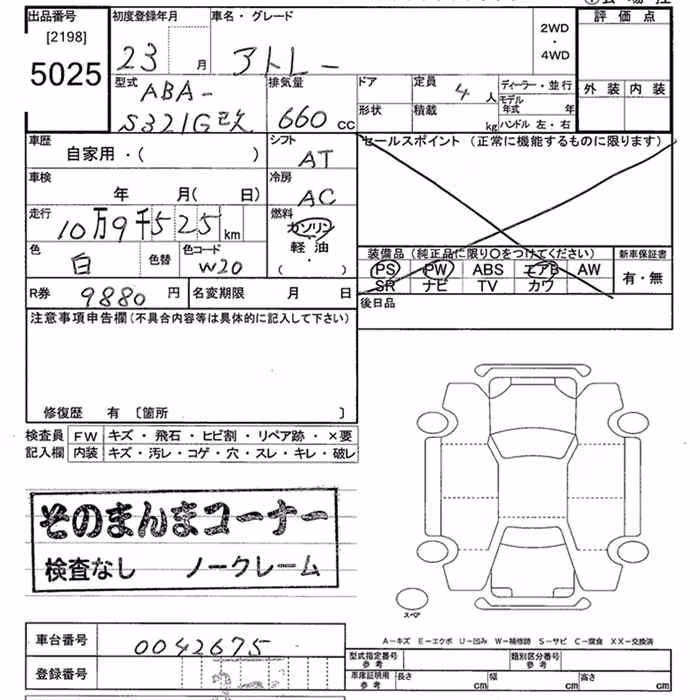 出品番号
[2198]
5025
初度登録年月
23 月
車名・グレード
アトレー
2WD
・
4WD
評価点
外装 内装
型式
ABA-
S321G改
排気量
660 CC
ドア
形状
定員
4 人
積載
kg
ディーラー・並行
モデル年式 年
ハンドル 左・右
車歴
自家用・( )
シフト
AT
セールスポイント (正常に機能するものに限ります)
車検
年 月( 日)
冷房
AC
走行
10万9千525 km
燃料
ガソリン
軽油
( ・ )
色
白
色替
色コード
W20
装備品 (純正品に限り○をつけてください)
新車保証書
PS PW ABS エアB AW
SR ナビ TV カワ
有・無
R券 9880 円
名変期限 月 日
後日品
注意事項申告欄 (不具合内容等は具体的に記入して下さい)
修復歴 有 〔箇所 〕
検査員 FW キズ・飛石・ヒビ割・リペア跡・×要
記入欄 内装 キズ・汚レ・コゲ・穴・スレ・キレ・破レ
そのまんまコーナー
検査なし ノークレーム
スペア
A-キズ E-エクボ U-凹み W-補修跡 S-サビ C-腐食 XX-交換済
車台番号 0042675
登録番号
型式指定番号
参考
類別区分番号
参考
車庫証明用
参考
長さ cm 幅 cm 高さ cm